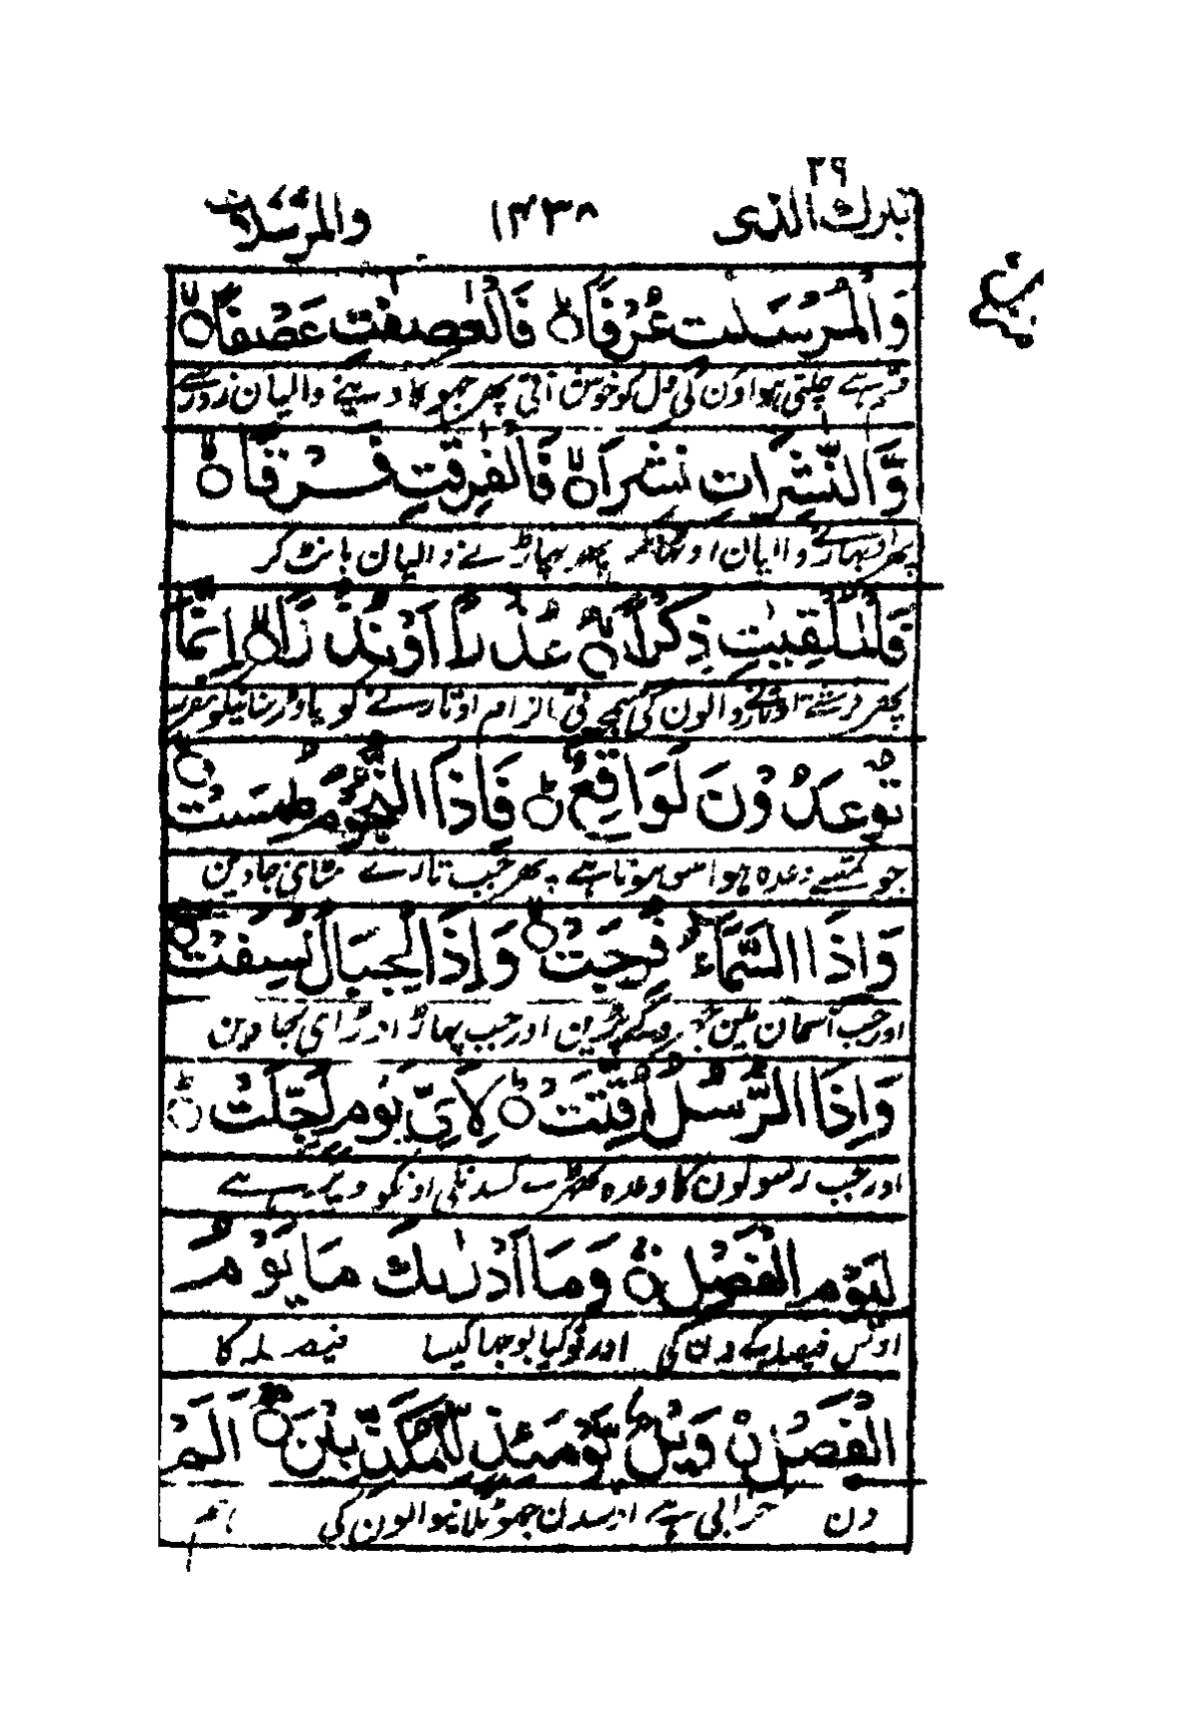 ٢٩
تبرك الذى ١٤٣٨ والمرسلات
وَالْمُرْسَلٰتِ عُرْفًا ۙ فَالْعٰصِفٰتِ عَصْفًا ۙ
قسم ہے چلتی ہواون کی دل کو خوش آتی پھر جھوکا دینے والیان زور سے
وَّالنّٰشِرَاتِ نَشْرًا ۙ فَالْفٰرِقٰتِ فَرْقًا ۙ
پھر اوبھارنے والیان اوٹھاکر پھر پھاڑنے والیان بانٹ کر
فَالْمُلْقِيٰتِ ذِكْرًا ۙ عُذْرًا اَوْ نُذْرًا ۙ اِنَّمَا
پھر فرشتے اوتارنے والون کی سمجھوتی الزام اوتارنے کو یا ڈر سنانیکو مقرر
تُوْعَدُوْنَ لَوَاقِعٌ ؕ فَاِذَا النُّجُوْمُ طُمِسَتْ ۙ
جو تمسے وعدہ ہوا سو ہونا ہے پھر جب تارے مٹائی جاوین
وَاِذَا السَّمَآءُ فُرِجَتْ ۙ وَاِذَا الْجِبَالُ نُسِفَتْ ۙ
اور جب آسمان مین جھروکے پڑین اور جب پہاڑ اوڑای جاوین
وَاِذَا الرُّسُلُ اُقِّتَتْ ؕ لِاَيِّ يَوْمٍ اُجِّلَتْ ؕ
اور جب رسولون کا وعدہ ٹھہرے کسدنکی اونکو دیر ہے
لِيَوْمِ الْفَصْلِ ۚ وَمَا اَدْرٰىكَ مَا يَوْمُ
اوس فیصلہ کے دن کی اور تو کیا بوجھا کیسا فیصلہ کا
الْفَصْلِ ؕ وَيْلٌ يَّوْمَئِذٍ لِّلْمُكَذِّبِيْنَ ۝ اَلَمْ
دن خرابی ہے اوسدن جھوٹلانیوالون کی